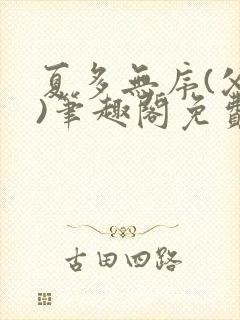 夏多無序(父
)筆趣閣免費
古田四路